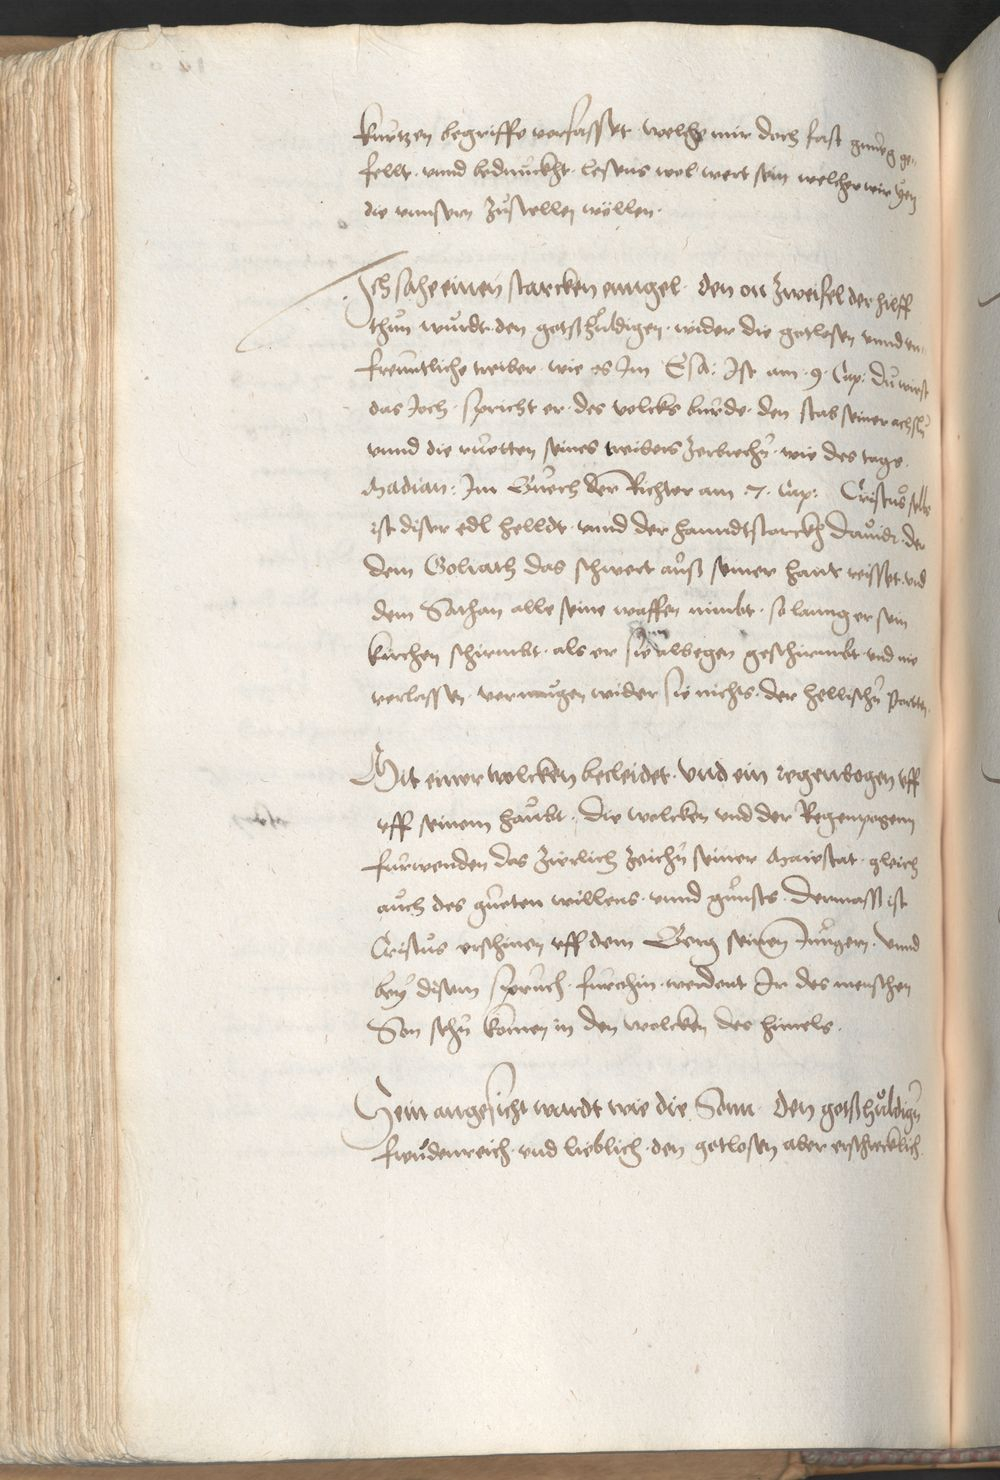 kurtzen begriffe verfasset welhe mir doch fast gnueg ge-
fellt. vnnd bedunckht. lesens wol wert sein welher wir yetz
die vnnsern zustellen wöllen.
Ich sahe einen starcken enngel. den on Zweifel der hilff
thun wurdt. den gotßhuldigen. wider die gotlosen vnnd vn-
freuntliche treiber. wie es Im Esa: Ist am .9. Cap: Du wirst
das Joch. spricht er. des volcks burde. den stab seiner achsln
vnnd die ruetten seines treibers Zerbrechn. wie des tags.
Madian: Im Buech der Richter am .7. Cap: Cristus selbs
ist diser edl helldt. vnnd der hanndtstarckh Dauidt. der
dem Goliath das schwert auß seiner hant reisset. vnd
dem Sathan alle seine waffen nimbt. so lanng er sein
kirchen schirmbt. als er sie alwegen geschirmbt. vnd nie
verlassen. vermügen wider sie nichts. der hellischn Portten.
Mit einer wolcken becleidet. vnd ein regenbogen vff
vff seinem haubt. Die wolcken vnd der Regenpogenn
furwenden das zierlich zeichn seiner Maiestat. gleich
auch des gueten willens. vnnd gunsts. Dermasß ist
Cristus erschinen vff dem Berg seinen Jungern. Vnnd
bey disem spruch. furohin. werdent Ir des menschen
Son sehn komen in den wolcken des himels.
Sein angesicht wardt wie die Sonn. Den gotßhuldign
freudenreich. vnd lieblich. den gotlosen aber erschrecklich.